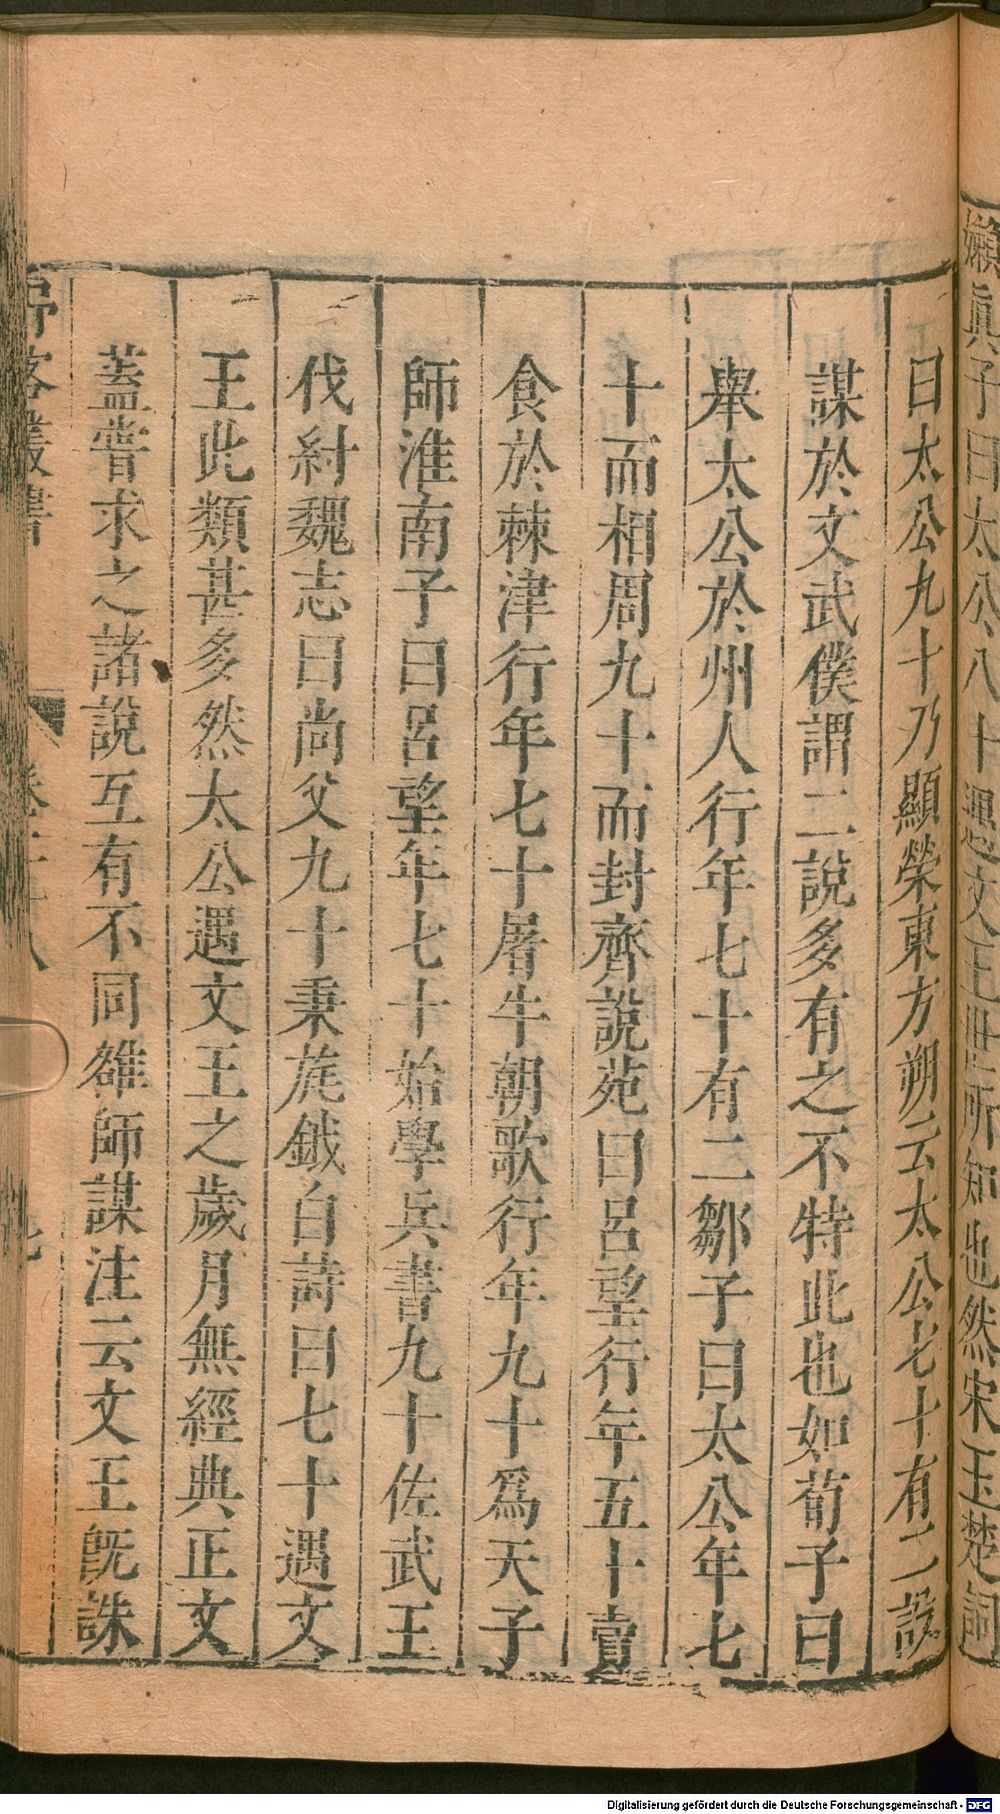 嬾眞子曰太公八十遇文王世所知也然宋玉楚詞
曰太公九十乃顯榮東方朔云太公七十有二設
謀於文武僕謂二說多有之不特此也如荀子曰
舉太公於州人行年七十有二鄒子曰太公年七
十而相周九十而封齊說苑曰呂望行年五十賣
食於棘津行年七十屠牛朝歌行年九十爲天子
師淮南子曰呂望年七十始學兵書九十佐武王
伐紂魏志曰尚父九十秉旄鉞白詩曰七十遇文
王此類甚多然太公遇文王之歲月無經典正文
蓋嘗求之諸說互有不同雒師謀注云文王旣誅
客叢書
卷二十八
七
Digitalisierung gefördert durch die Deutsche Forschungsgemeinschaft - DFG